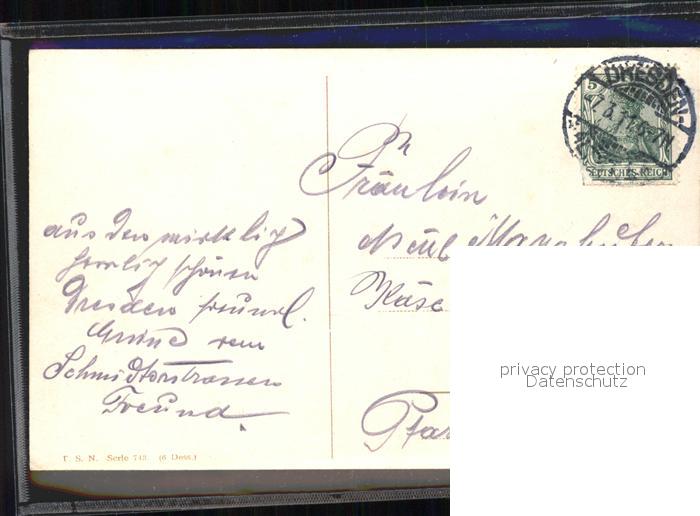 DRESDEN
5
DEUTSCHES REICH
Fräulein
aus dem wirklig
herrlig schönen
Dresden freundl.
Grüße vom
Schmidtstrassen
Freund
Käse
Pfar
T. S. N. Serie 743. (6 Dess.)
privacy protection
Datenschutz